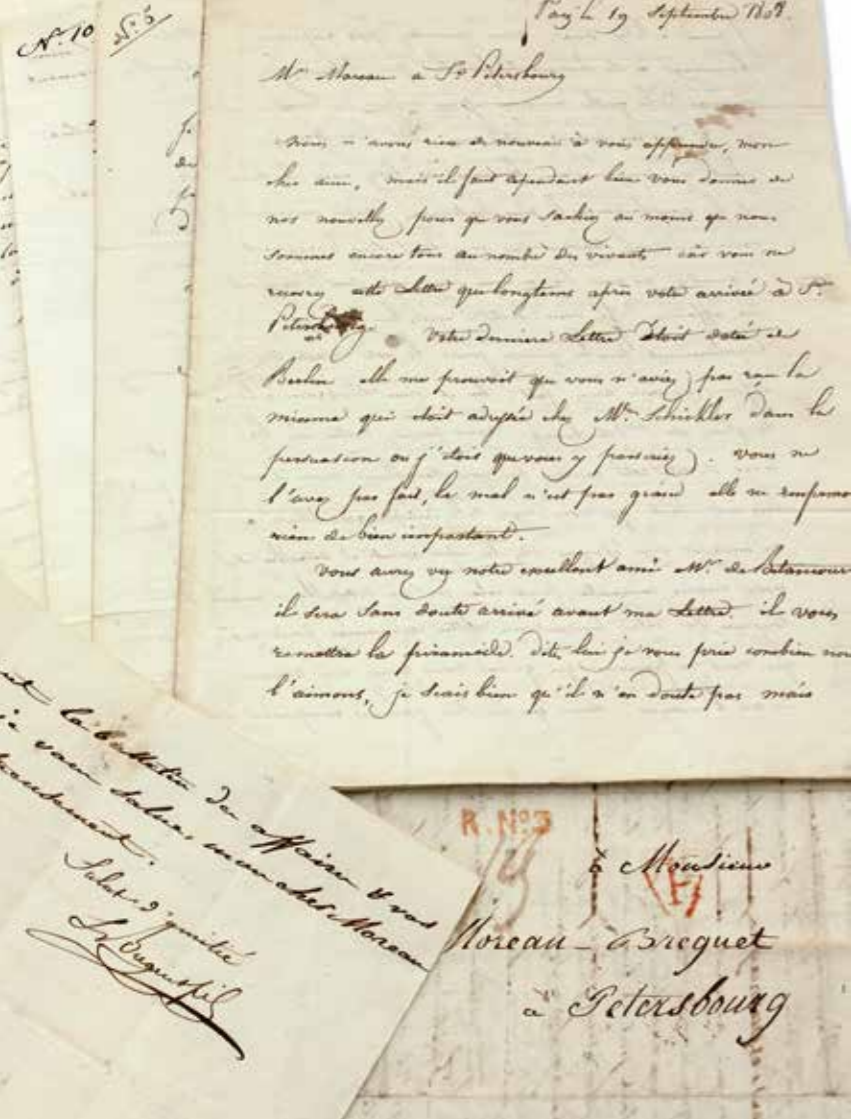 N.º 10
N.º 5
Paris le 19 Septembre 1808.
Mr Moreau a St Petersbourg
Nous n'avons rien de nouveau à vous apprendre, mon
cher ami, mais il faut cependant bien vous donner de
nos nouvelles pour que vous sachiez au moins que nous
sommes encore tous au nombre des vivants car vous ne
recevrez cette Lettre que longtems après votre arrivée à St.
Petersbourg. Votre derniere Lettre étoit datée de
Berlin elle me prouvoit que vous n'aviez pas reçu la
mienne qui étoit adressée chez Mr. Schickler dans la
persuasion ou j'étois que vous y passeriez. vous ne
l'avez pas fait, le mal n'est pas grand elle ne renfermoit
rien de bien important.
Vous aurez vu notre excellent ami Mr. de Betancourt
il sera sans doute arrivé avant ma Lettre. il vous
remettra la piramide. dites lui je vous prie combien nous
l'aimons, je sais bien qu'il n'en doute pas mais
la bulletin des affaires & vous
je vous salue mon cher Moreau
Salut d'amitié
R. Nº 3
à Monsieur
Moreau - Breguet
a Petersbourg